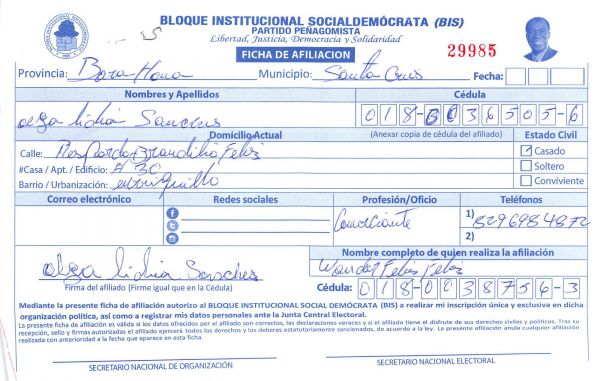 BLOQUE INSTITUCIONAL SOCIALDEMÓCRATA (BIS)
PARTIDO PEÑAGOMISTA
Libertad, Justicia, Democracia y Solidaridad
FICHA DE AFILIACION
29985
Provincia: Bara Hona Municipio: Santa Cruis Fecha:
Nombres y Apellidos Cédula
olga lidia Sanches 018-0036505-6
Domicilio Actual (Anexar copia de cédula del afiliado) Estado Civil
Calle: Feliz Casado
#Casa / Apt. / Edificio: # 30 Soltero
Barrio / Urbanización: Conviviente
Correo electrónico Redes sociales Profesión/Oficio Teléfonos
Comerciante 1) 8296984872
2)
Nombre completo de quien realiza la afiliación
olga lidia Sanches Wander Feliz Feliz
Firma del afiliado (Firme igual que en la Cédula) Cédula: 018-0038756-3
Mediante la presente ficha de afiliación autorizo al BLOQUE INSTITUCIONAL SOCIAL DEMÓCRATA (BIS) a realizar mi inscripción única y exclusiva en dicha
organización política, así como a registrar mis datos personales ante la Junta Central Electoral.
La presente ficha de afiliación es válida si los datos ofrecidos por el afiliado son correctos, las declaraciones veraces y si el afiliado tiene el disfrute de sus derechos civiles y politicos. Tras su
recepción, sello y firmas autorizadas el afiliado ejercerá todos los derechos y los deberes estatutariamente sancionados, de acuerdo a la ley. La presente afiliación anula cualquier afiliación
realizada con anterioridad a la fecha que aparece en esta ficha.
SECRETARIO NACIONAL DE ORGANIZACIÓN SECRETARIO NACIONAL ELECTORAL